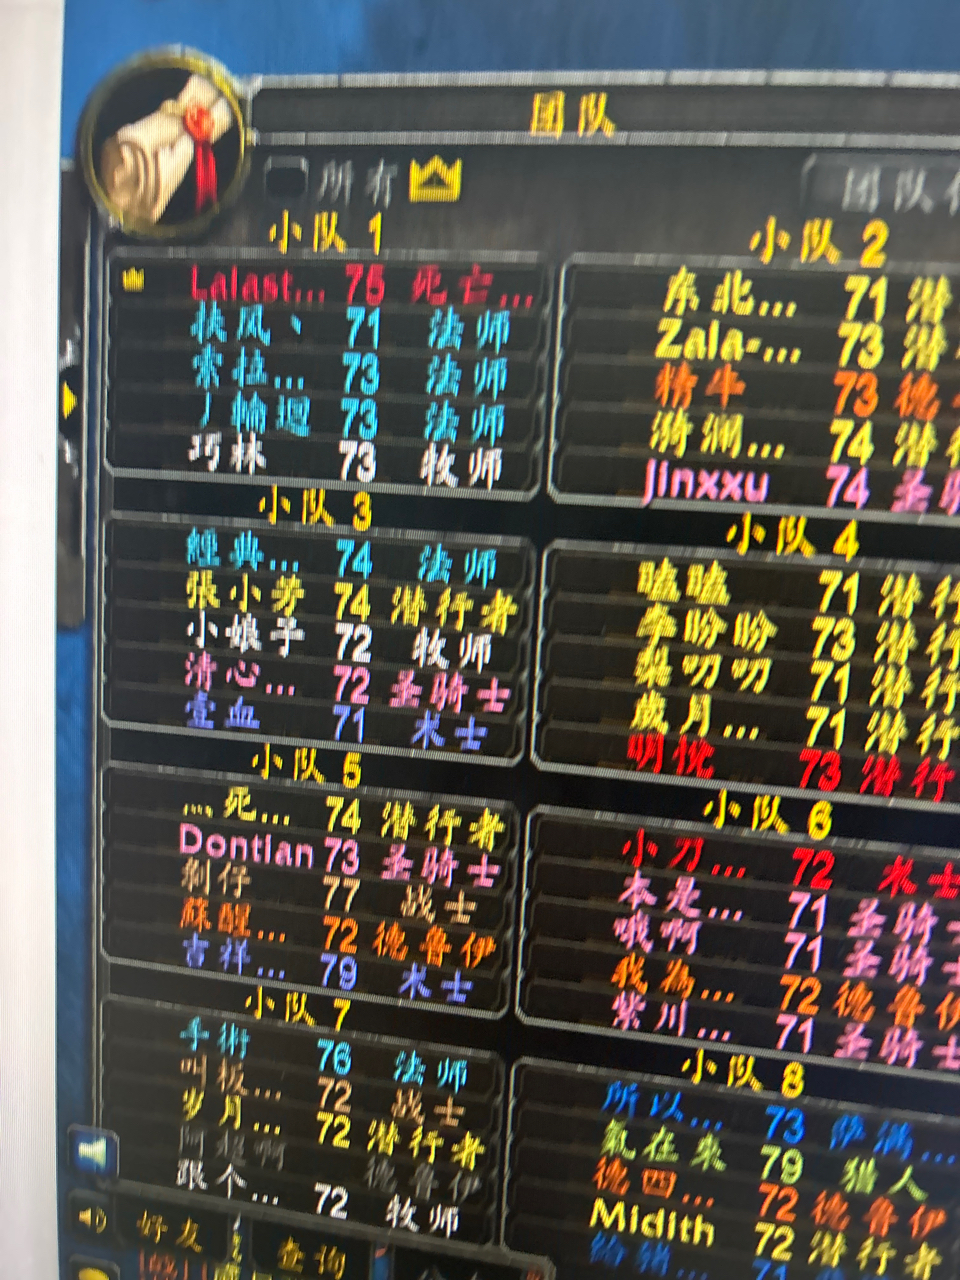 团队
所有
团队
小队 1
Lalast... 75 死亡...
扶风丶 71 法师
索拉... 73 法师
丿輪迴 73 法师
巧林 73 牧师
小队 2
东北... 71 潜
Zala-... 73 潜
精牛 73 德
漪澜... 74 潜
Jinxxu 74 圣骑
小队 3
經典... 74 法师
張小芳 74 潜行者
小娘子 72 牧师
清心... 72 圣骑士
壹血 71 术士
小队 4
瞌瞌 71 潜行
李盼盼 73 潜行
梨叨叨 71 潜行
歲月... 71 潜行
明悅 73 潜行
小队 5
灬死... 74 潜行者
Dontlan 73 圣骑士
剃仔 77 战士
蘇醒... 72 德鲁伊
吉祥... 79 术士
小队 6
小刀... 72 术士
本是... 71 圣骑士
哦啊 71 圣骑士
我為... 72 德鲁伊
紫川... 71 圣骑士
小队 7
手術 76 法师
叫板... 72 战士
岁月... 72 潜行者
德鲁伊
跟个... 72 牧师
小队 8
所以... 73 萨满...
氣在来 79 猎人
德四... 72 德鲁伊
Midith 72 潜行者
好友
查询